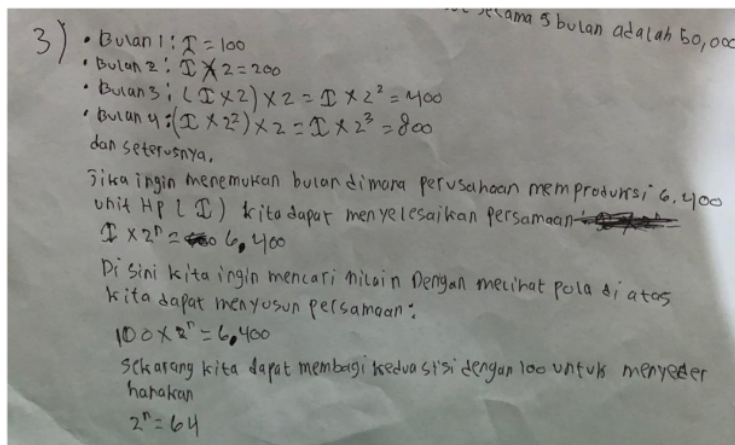 selama 5 bulan adalah 50,000
3) • Bulan 1 : I = 100
• Bulan 2 : I X 2 = 200
• Bulan 3 : (I X 2) X 2 = I X 2² = 400
• Bulan 4 : (I X 2²) X 2 = I X 2³ = 800
dan seterusnya.
Jika ingin menemukan bulan dimana perusahaan memproduksi 6,400
unit HP (I) kita dapat menyelesaikan persamaan
I X 2ⁿ = 6,400
Di sini kita ingin mencari nilai n Dengan melihat pola di atas
kita dapat menyusun persamaan :
100 X 2ⁿ = 6,400
Sekarang kita dapat membagi kedua sisi dengan 100 untuk menyeder
hanakan
2ⁿ = 64